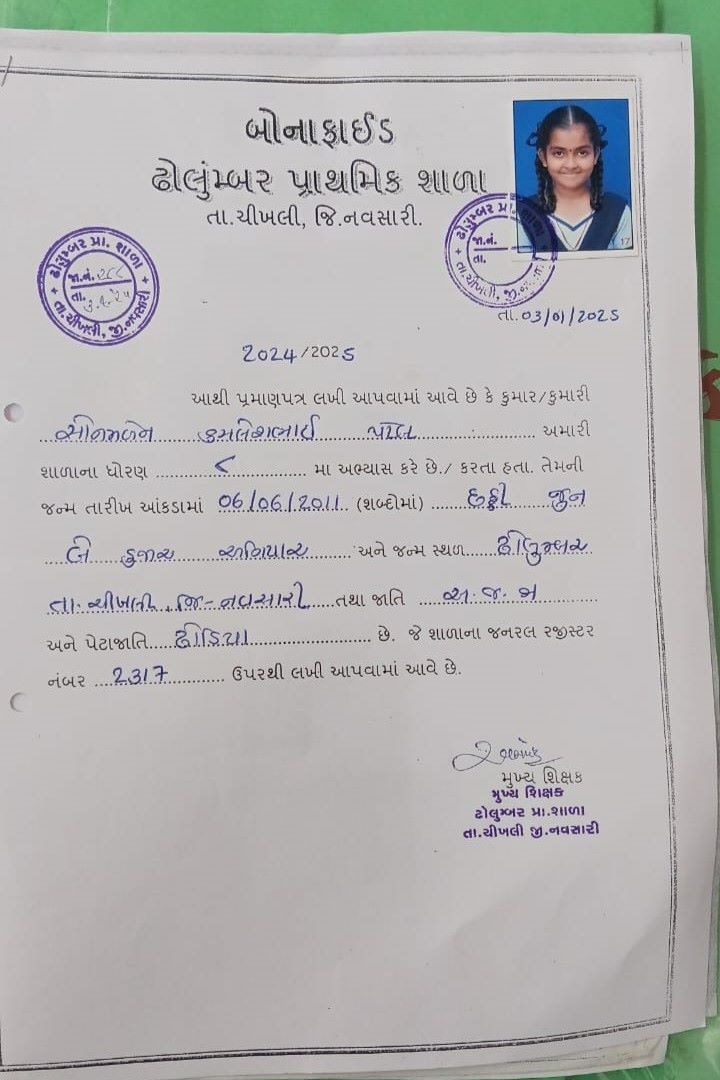 બોનાફાઈડ
ઢોલુંમ્બર પ્રાથમિક શાળા
તા.ચીખલી, જિ.નવસારી.
ઢોલુમ્બર પ્રા. શાળા
જા.નં.
તા.
તા.ચીખલી, જી.નવસારી
જા.નં.
તા.
17
તા. 03/01/2025
2024/2025
આથી પ્રમાણપત્ર લખી આપવામાં આવે છે કે કુમાર/કુમારી
કમલેશભાઈ પટેલ અમારી
શાળાના ધોરણ ૮ મા અભ્યાસ કરે છે./ કરતા હતા. તેમની
જન્મ તારીખ આંકડામાં 06/06/2011 (શબ્દોમાં) છઠ્ઠી જુન
બે હજાર અગિયાર અને જન્મ સ્થળ ઢોલુમ્બર
તા. ચીખલી, જિ-નવસારી તથા જાતિ અ.જ.જા
અને પેટાજાતિ ઢોડિયા છે. જે શાળાના જનરલ રજીસ્ટર
નંબર 2317 ઉપરથી લખી આપવામાં આવે છે.
મુખ્ય શિક્ષક
મુખ્ય શિક્ષક
ઢોલુમ્બર પ્રા.શાળા
તા.ચીખલી જી.નવસારી